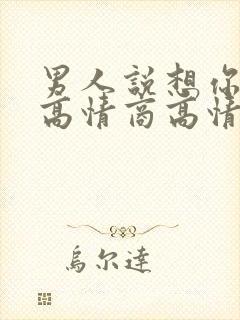 男人說想你
高情商高情
烏尔達